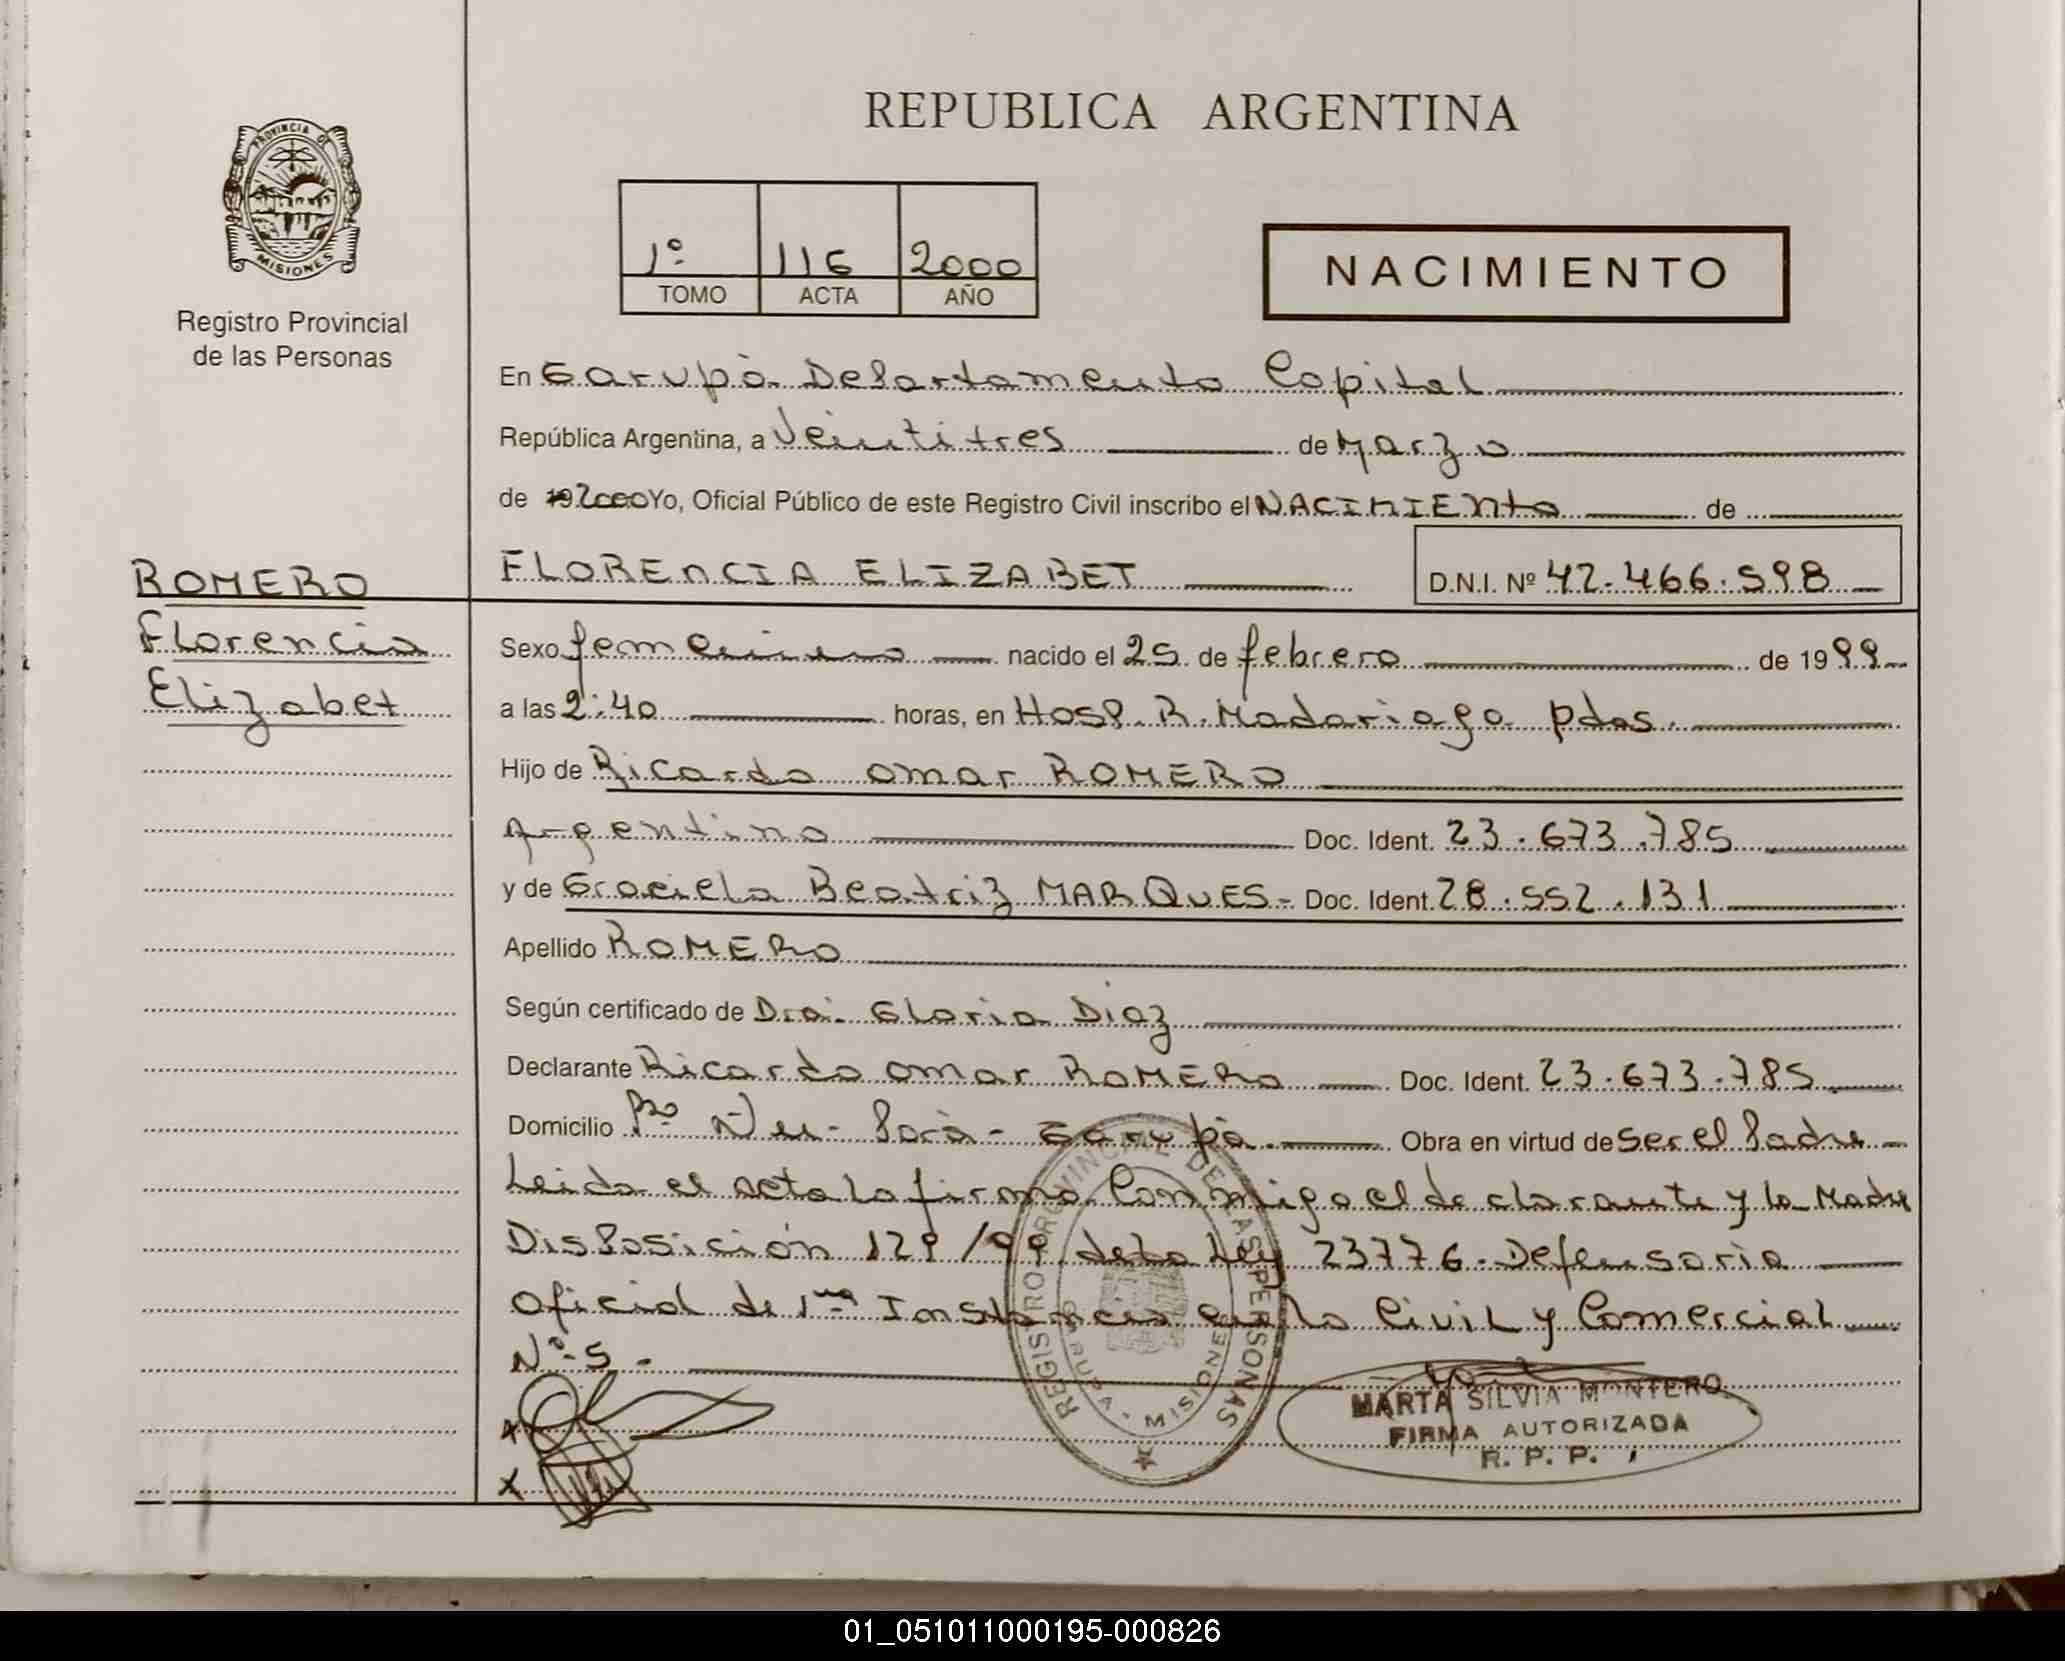 REPUBLICA ARGENTINA
PROVINCIA DE
MISIONES
Registro Provincial
de las Personas
1º 116 2000
TOMO ACTA AÑO
NACIMIENTO
En Garupà Departamento Capital
República Argentina, a Veintitres de Marzo
de 19 2000 Yo, Oficial Público de este Registro Civil inscribo el NACIMIENto de
FLORENCIA ELIZABET D.N.I. Nº 42.466.598
ROMERO
Florencia
Elizabet
Sexo femenino nacido el 25 de febrero de 1999
a las 2:40 horas, en Hosp. R. Madariaga Pdas.
Hijo de Ricardo Omar ROMERO
Argentino Doc. Ident. 23.673.785
y de Graciela Beatriz MARQUES - Doc. Ident. 28.552.131
Apellido ROMERO
Según certificado de Dra. Gloria Diaz
Declarante Ricardo Omar ROMERO Doc. Ident. 23.673.785
Domicilio Bo Ñu - Porà - Garupà. Obra en virtud de ser el Padre
Leida el acta la firma Conmigo el declarante y la Madre
Disposición 129/99 de la Ley 23776. Defensoria
Oficial de 1ra Instancia en lo Civil y Comercial
Nº 5 -
REGISTRO PROVINCIAL DE LAS PERSONAS
MISIONES
MARTA SILVIA MONTERO
FIRMA AUTORIZADA
R. P. P.
01_051011000195-000826